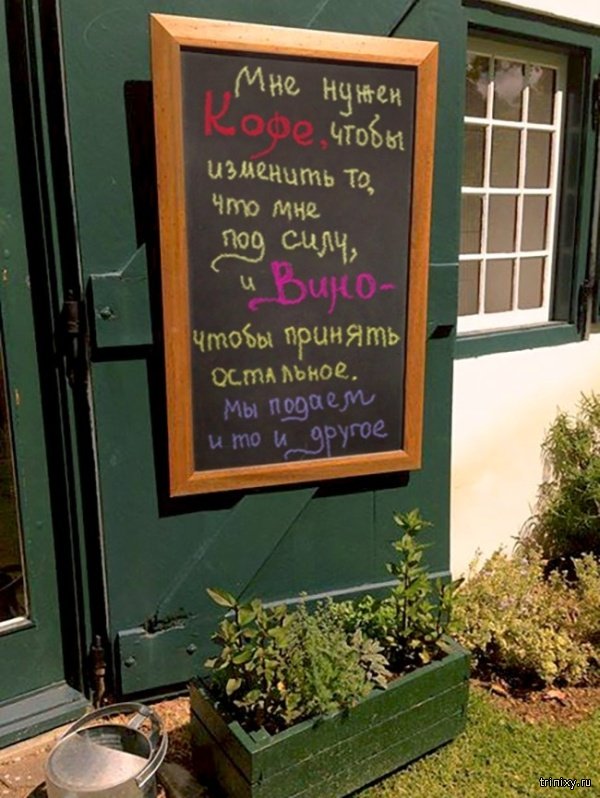 Мне нужен
Кофе, чтобы
изменить то,
что мне
под силу,
и Вино-
чтобы принять
остальное.
мы подаем
и то и другое
trinixy.ru